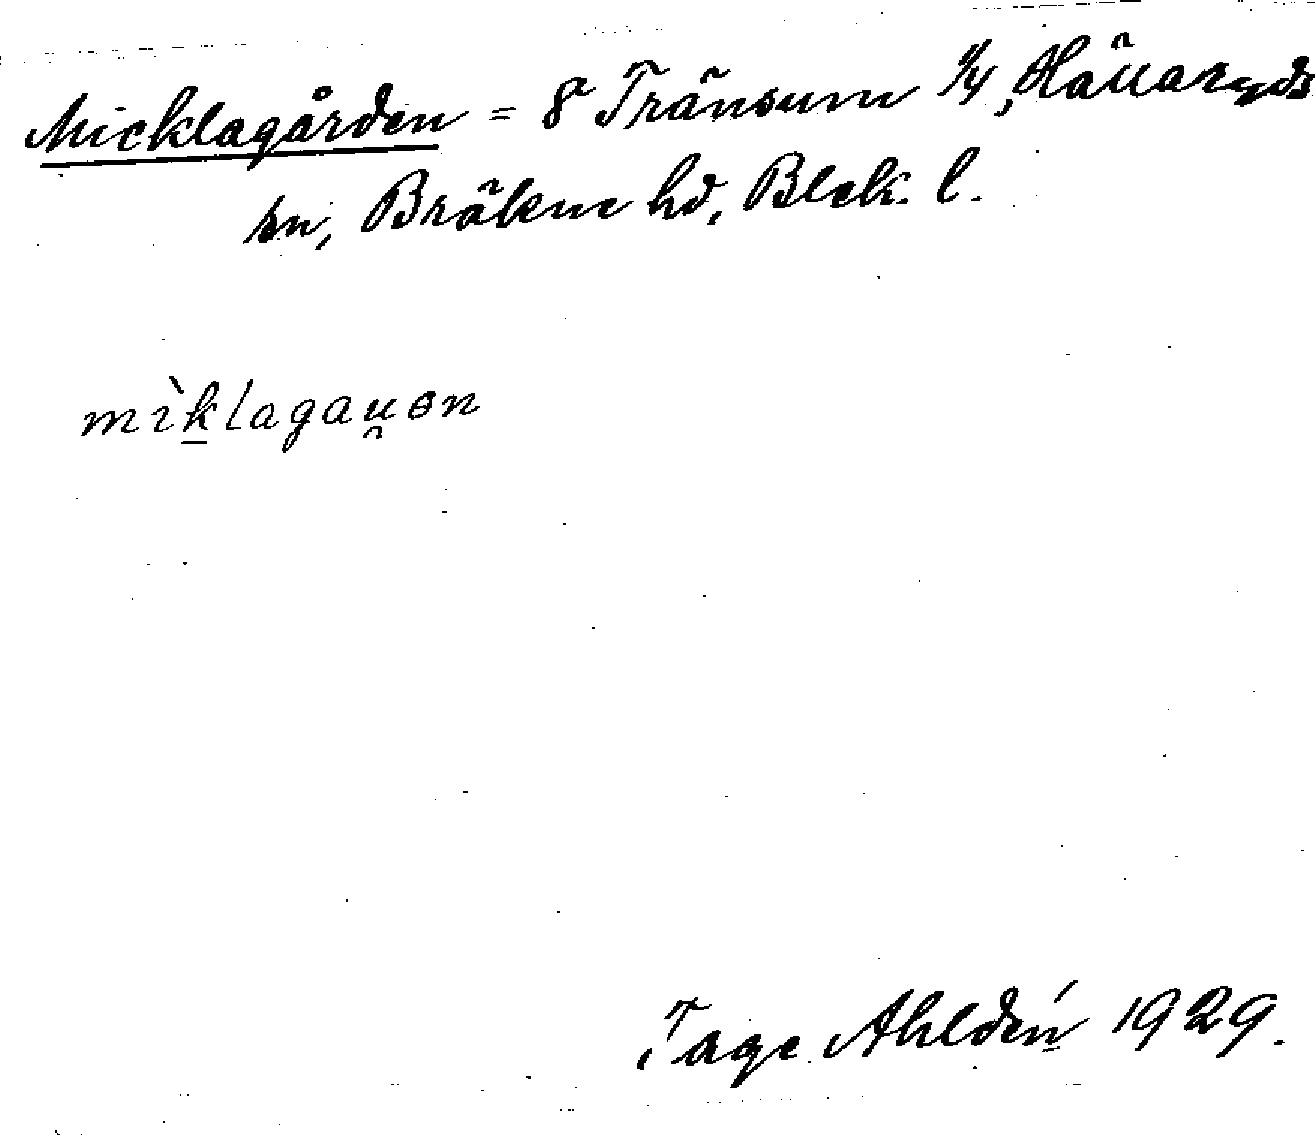 Micklagården = 8 Tränsum 1/4, Hällaryds
sn, Bräkne hd, Blek. l.
mìk̲lagau̯ən
Tage Ahldén 1929.